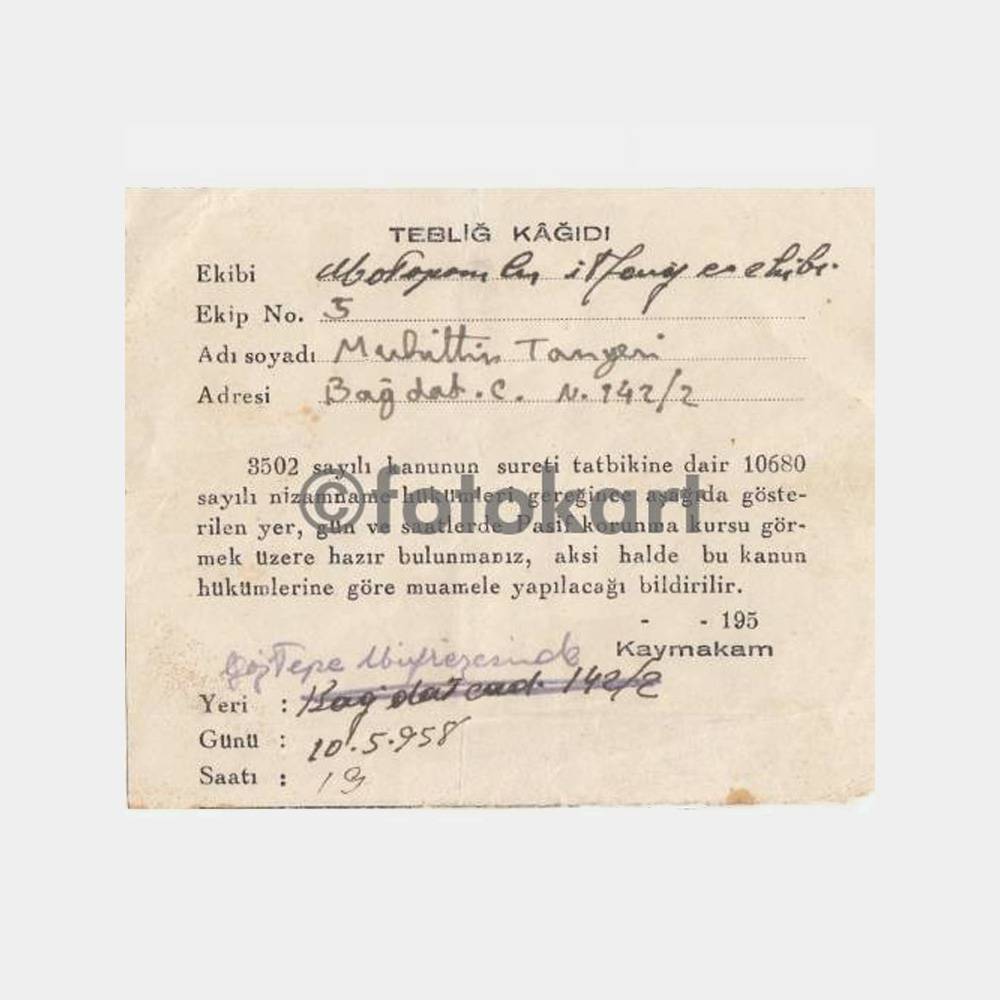 TEBLİĞ KÂĞIDI
Ekibi Motopomlu itfaiye ekibi.
Ekip No. 5
Adı soyadı Muhittin Tanyeri
Adresi Bağdat.C. N.142/2
3502 sayılı kanunun sureti tatbikine dair 10680
sayılı nizamname hükümleri gereğince aşağıda göste-
rilen yer, gün ve saatlerde Pasif korunma kursu gör-
mek üzere hazır bulunmanız, aksi halde bu kanun
hükümlerine göre muamele yapılacağı bildirilir.
- - 195
Kaymakam
Göztepe Müfrezesinde
Yeri : Bağdat cad. 142/2
Günü : 10.5.958
Saatı : 19
©fotokart